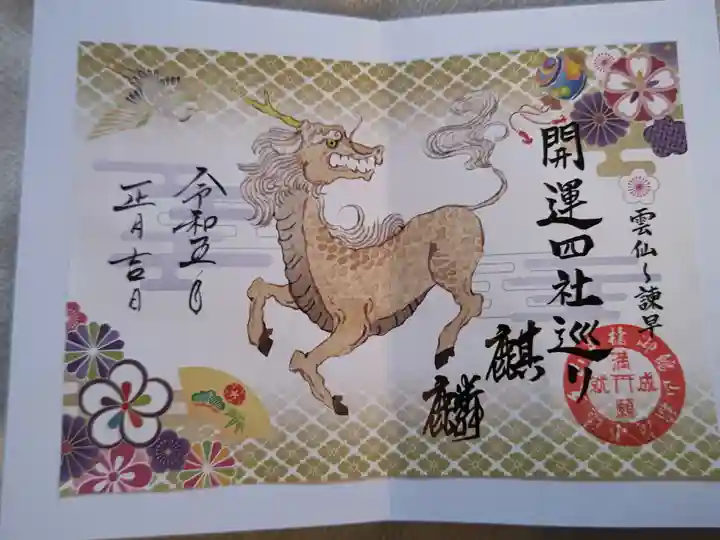 雲仙〜諫早
開運四社巡り
麒
麟
満
願
成
就
令和五年
正月吉日